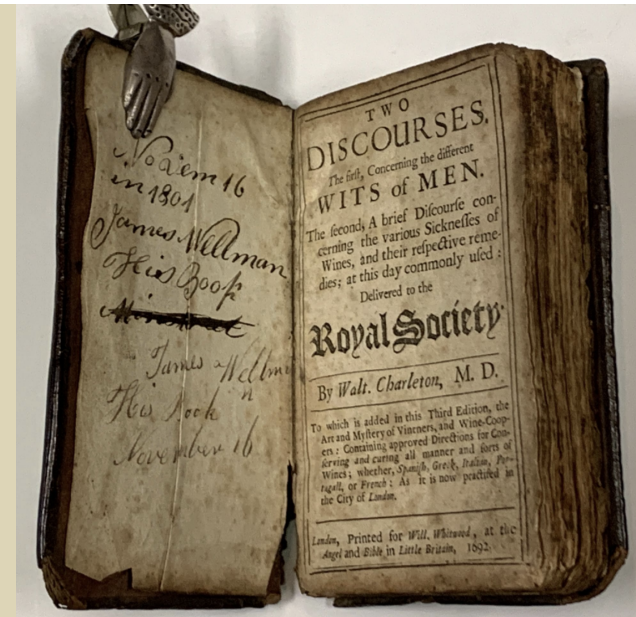 Novem 16
in 1801
James Wellman
His Book
James Wellm
n
His Book
November 16
TWO
DISCOURSES.
The first, Concerning the different
WITS of MEN.
The ſecond, A brief Diſcourſe con-
cerning the various Sickneſſes of
Wines, and their reſpective reme-
dies; at this day commonly uſed :
Delivered to the
Royal Society.
By Walt. Charleton, M. D.
To which is added in this Third Edition, the
Art and Myſtery of Vintners, and Wine-Coop-
ers : Containing approved Directions for Con-
ſerving and curing all manner and ſorts of
Wines; whether, Spaniſh, Greek, Italian, Por-
tugall, or French : As it is now practiſed in
the City of London.
London, Printed for Will. Whitwood, at the
Angel and Bible in Little Britain, 1692.